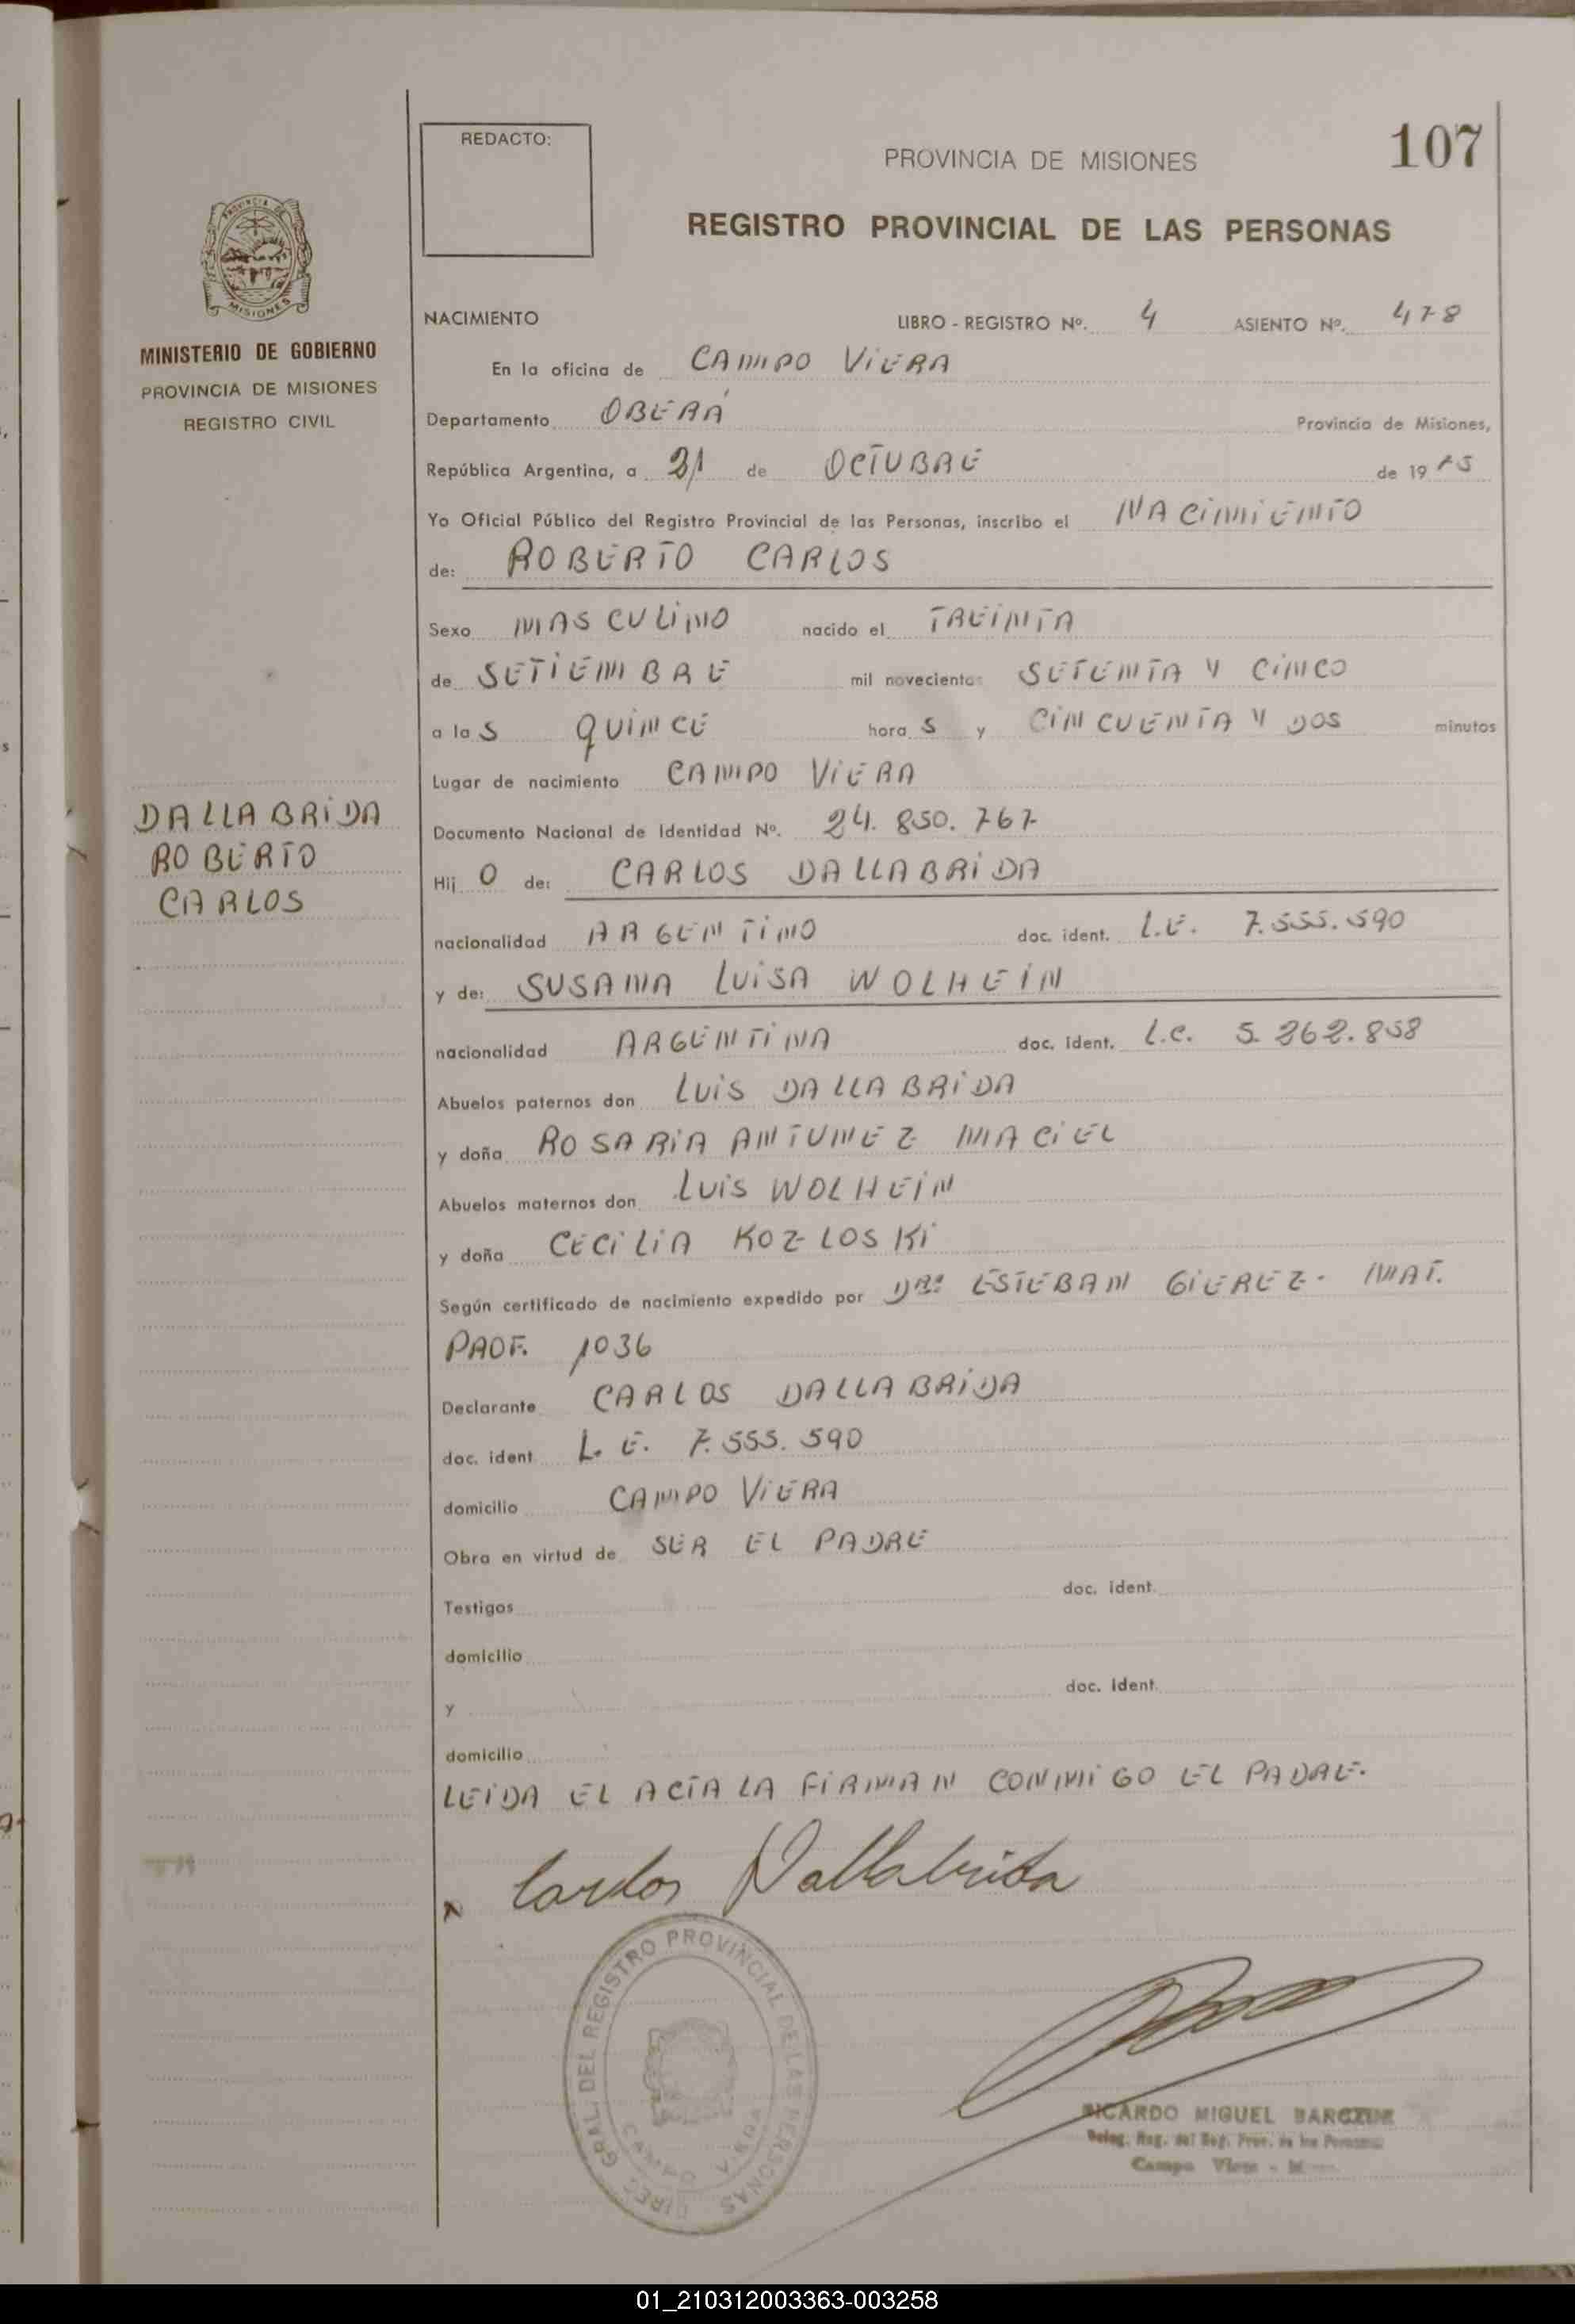 107
REDACTO:
PROVINCIA DE MISIONES
REGISTRO PROVINCIAL DE LAS PERSONAS
PROVINCIA DE MISIONES
MINISTERIO DE GOBIERNO
PROVINCIA DE MISIONES
REGISTRO CIVIL
DALLABRIDA
ROBERTO
CARLOS
NACIMIENTO LIBRO - REGISTRO Nº. 4 ASIENTO Nº. 478
En la oficina de CAMPO VIERA
Departamento OBERÁ Provincia de Misiones,
República Argentina, a 21 de OCTUBRE de 1975
Yo Oficial Público del Registro Provincial de las Personas, inscribo el NACIMIENTO
de: ROBERTO CARLOS
Sexo MASCULINO nacido el TREINTA
de SETIEMBRE mil novecientos SETENTA Y CINCO
a las QUINCE horas y CINCUENTA Y DOS minutos
Lugar de nacimiento CAMPO VIERA
Documento Nacional de Identidad Nº. 24.850.767
Hijo de: CARLOS DALLABRIDA
nacionalidad ARGENTINO doc. ident. L.E. 7.555.590
y de: SUSANA LUISA WOLHEIN
nacionalidad ARGENTINA doc. ident. L.C. 5.262.858
Abuelos paternos don LUIS DALLABRIDA
y doña ROSARIA ANTUNEZ MACIEL
Abuelos maternos don LUIS WOLHEIN
y doña CECILIA KOZLOSKI
Según certificado de nacimiento expedido por ESTEBAN GIEREZ - MAT.
PROF. 1036
Declarante CARLOS DALLABRIDA
doc. ident. L.E. 7.555.590
domicilio CAMPO VIERA
Obra en virtud de SER EL PADRE
Testigos doc. ident.
domicilio
y doc. ident.
domicilio
LEIDA EL ACTA LA FIRMAN CONMIGO EL PADRE.
Carlos Dallabrida
DIREC. GRAL. DEL REGISTRO PROVINCIAL DE LAS PERSONAS
CAMPO VIERA
RICARDO MIGUEL
Deleg. Reg. del Reg. Prov. de las Personas
Campo Viera
01_210312003363-003258